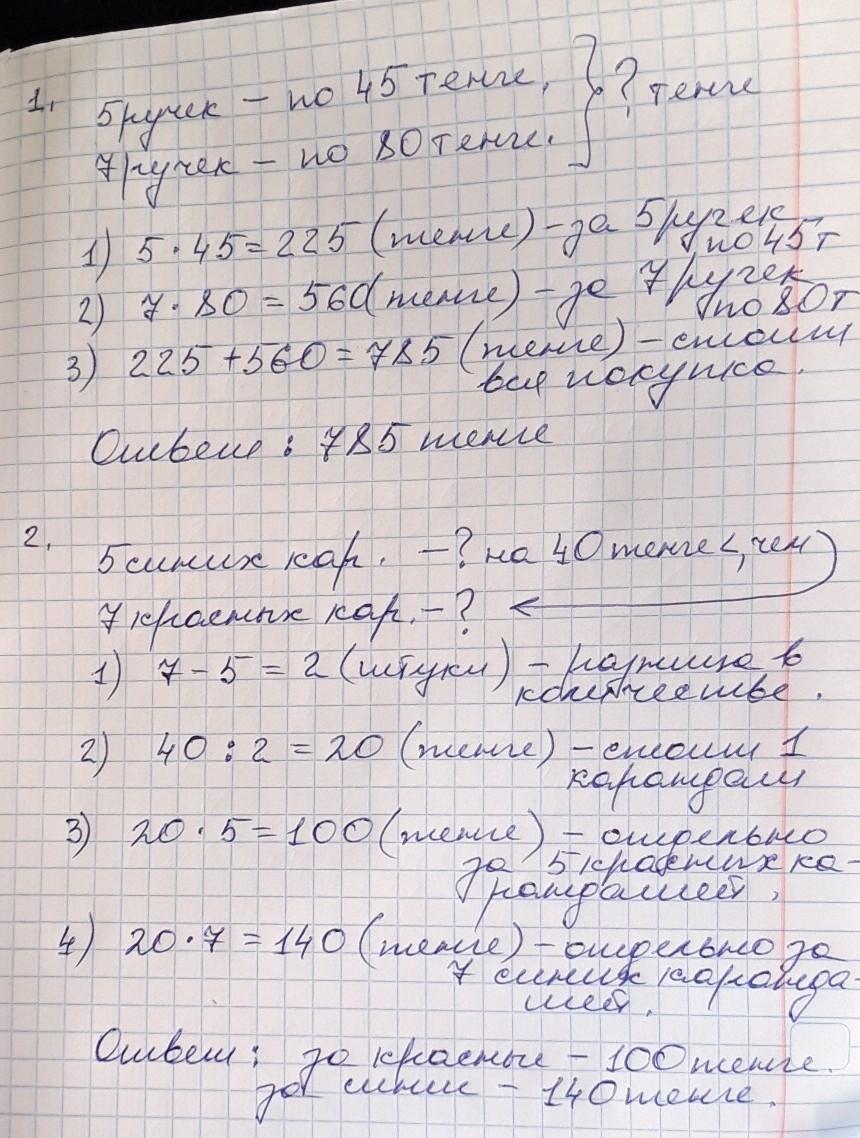 1. 5 ручек – по 45 тенге.
7 ручек – по 80 тенге. } ? тенге
1) 5 · 45 = 225 (тенге) – за 5 ручек
по 45 т
2) 7 · 80 = 560 (тенге) – за 7 ручек
по 80 т
3) 225 + 560 = 785 (тенге) – стоит
вся покупка.
Ответ: 785 тенге
2. 5 синих кар. – ? на 40 тенге <, чем
7 красных кар. – ?
1) 7 – 5 = 2 (штуки) – разница в
количестве.
2) 40 : 2 = 20 (тенге) – стоит 1
карандаш
3) 20 · 5 = 100 (тенге) – отдельно
за 5 красных ка-
рандашей,
4) 20 · 7 = 140 (тенге) – отдельно за
7 синих каранда-
шей.
Ответ: за красные – 100 тенге.
за синие – 140 тенге.